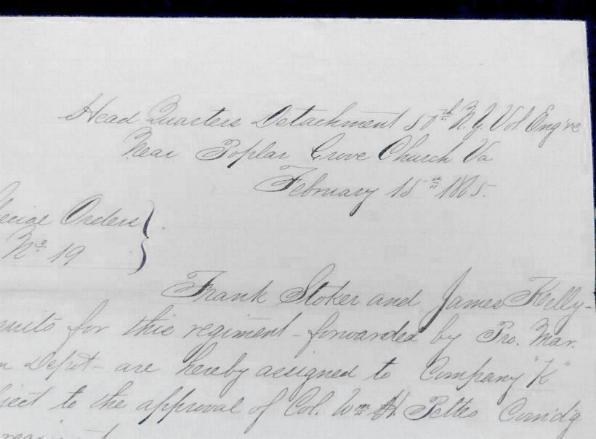 Head Quarters Detachment 50th N.Y. Vol Eng're
Near Poplar Grove Church Va
February 15th 1865.
Orders
No 19
Frank Stoker and James Kelly-
for this regiment - forwarded by Pro. Mar.
Depot - are hereby assigned to Company "K"
to the approval of Col. Wm H. Pettes Comd'g